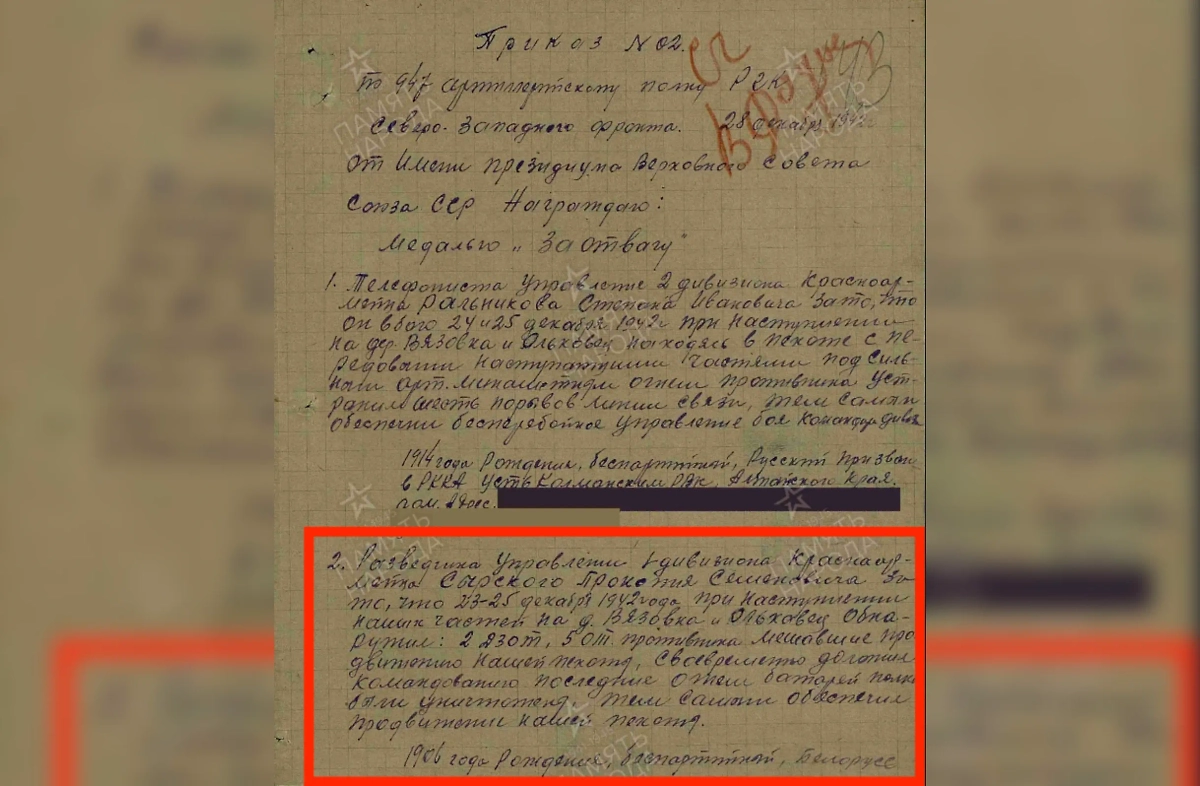 Приказ №02.
По 947 артиллертскому полку РГК
Северо-Западного фронта. 28 декабря 1942г
От Имени президиума Верховного Совета
Союза ССР Награждаю:
Медалью „За отвагу"
1. Телефониста Управление 2 дивизиона Красноар-
мейца Ральникова Степана Ивановича За то, что
Он в бою 24 и 25 декабря 1942г при Наступлении
На дер. Вязовка и Ольховец Находясь в пехоте с пе-
редовыми наступающими частями под силь-
ным арт. огнем противника Уст-
ранил шесть порывов линии связи, тем самым
обеспечил бесперебойное Управление боя
1914 года Рождения, беспартийный, Русский Призван
в РККА Усть Калманским РВК, Алтайского Края.
Дом. Адрес.
2. Разведчика Управлении 1 дивизиона Красноар-
мейца Сырского Семеновича За
то, что 23-25 декабря 1942 года при Наступлении
Наших частей на д. Вязовка и Ольховец Обна-
ружил: 2 ДЗОТ, 5 О.Т. противника мешавшие про
движению Нашей пехоты, Своевременно доложил
командованию последние Огнем батарей полка
были уничтожены, тем самым Обеспечил
Продвижение Нашей пехоты.
1906 года Рождения, беспартийный, Белорусс
ПАМЯТЬ
НАРОДА